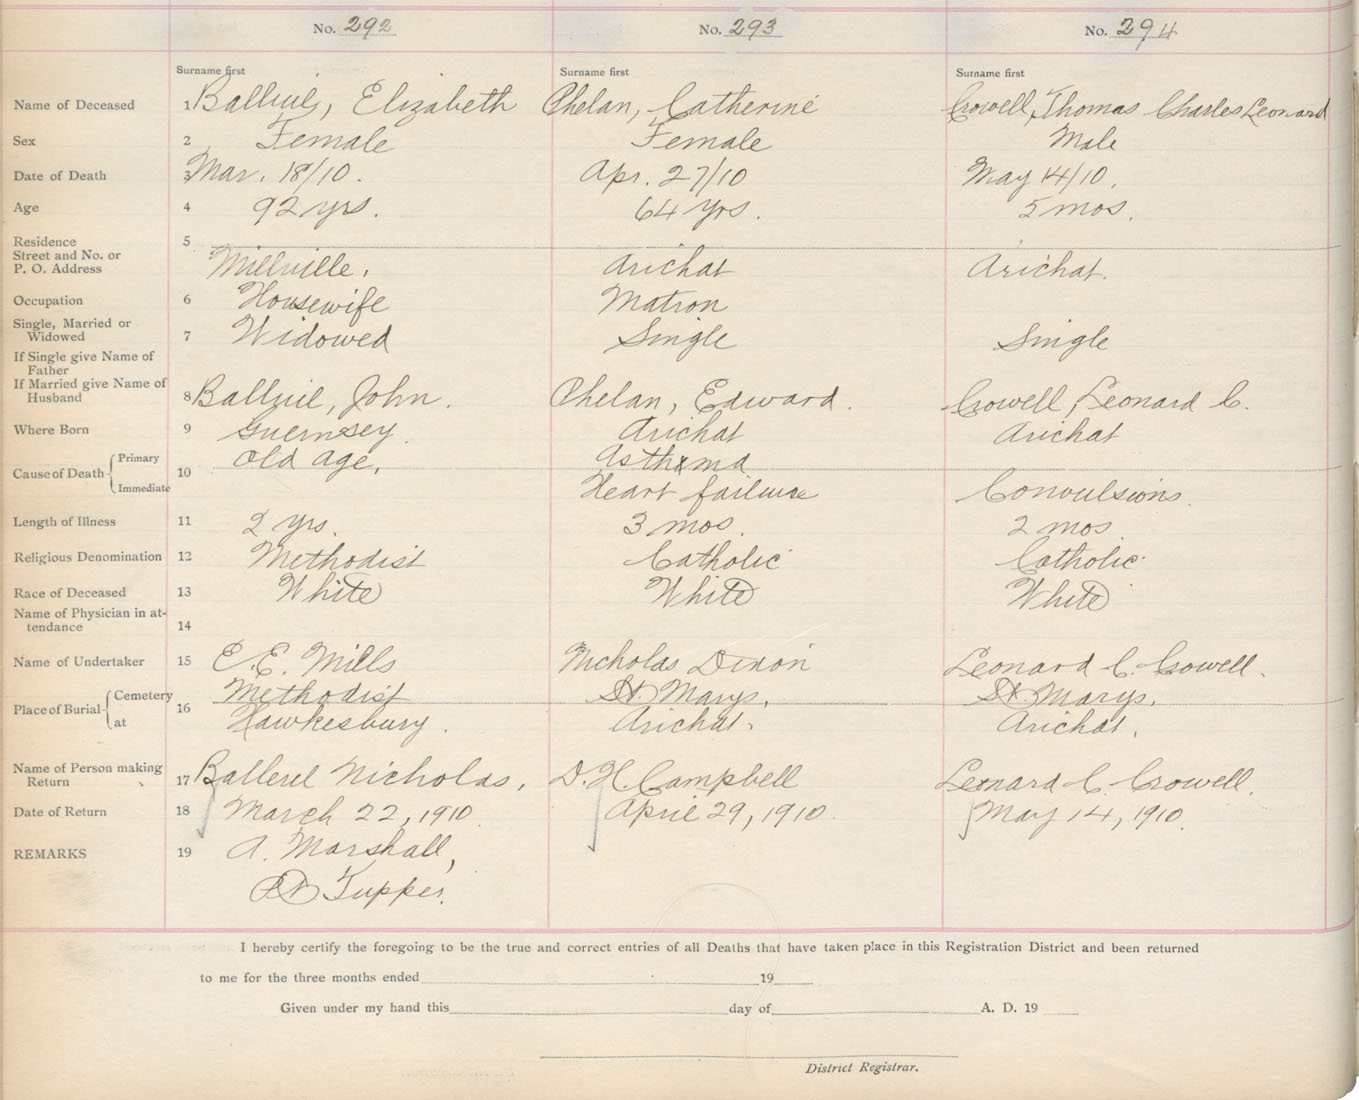 No. 292 No. 293 No. 294
Surname first Surname first Surname first
Name of Deceased 1 Elizabeth Phelan, Catherine Crowell, Thomas Charles Leonard
Sex 2 Female Female Male
Date of Death 3 Mar. 18/10. Apr. 27/10 May 14/10.
Age 4 92 yrs. 64 yrs. 5 mos.
Residence 5
Street and No. or
P. O. Address Millville. Arichat Arichat.
Occupation 6 Housewife Matron
Single, Married or
Widowed 7 Widowed Single Single
If Single give Name of
Father
If Married give Name of
Husband 8 John. Phelan, Edward. Crowell, Leonard C.
Where Born 9 Guernsey. Arichat Arichat
Cause of Death Primary 10 Old age, Asthma
Immediate Heart failure Convulsions.
Length of Illness 11 2 yrs. 3 mos. 2 mos
Religious Denomination 12 Methodist Catholic Catholic
Race of Deceased 13 White White White
Name of Physician in at-
tendance 14
Name of Undertaker 15 E. E. Mills Nicholas Leonard C. Crowell.
Place of Burial Cemetery 16 Methodist St. Marys, St. Marys,
at Hawkesbury. Arichat. Arichat.
Name of Person making
Return 17 Nicholas, D. H. Campbell Leonard C. Crowell.
Date of Return 18 March 22, 1910. April 29, 1910. May 14, 1910.
REMARKS 19 A. Marshall,
Pt Tupper.
I hereby certify the foregoing to be the true and correct entries of all Deaths that have taken place in this Registration District and been returned
to me for the three months ended 19
Given under my hand this day of A. D. 19
District Registrar.